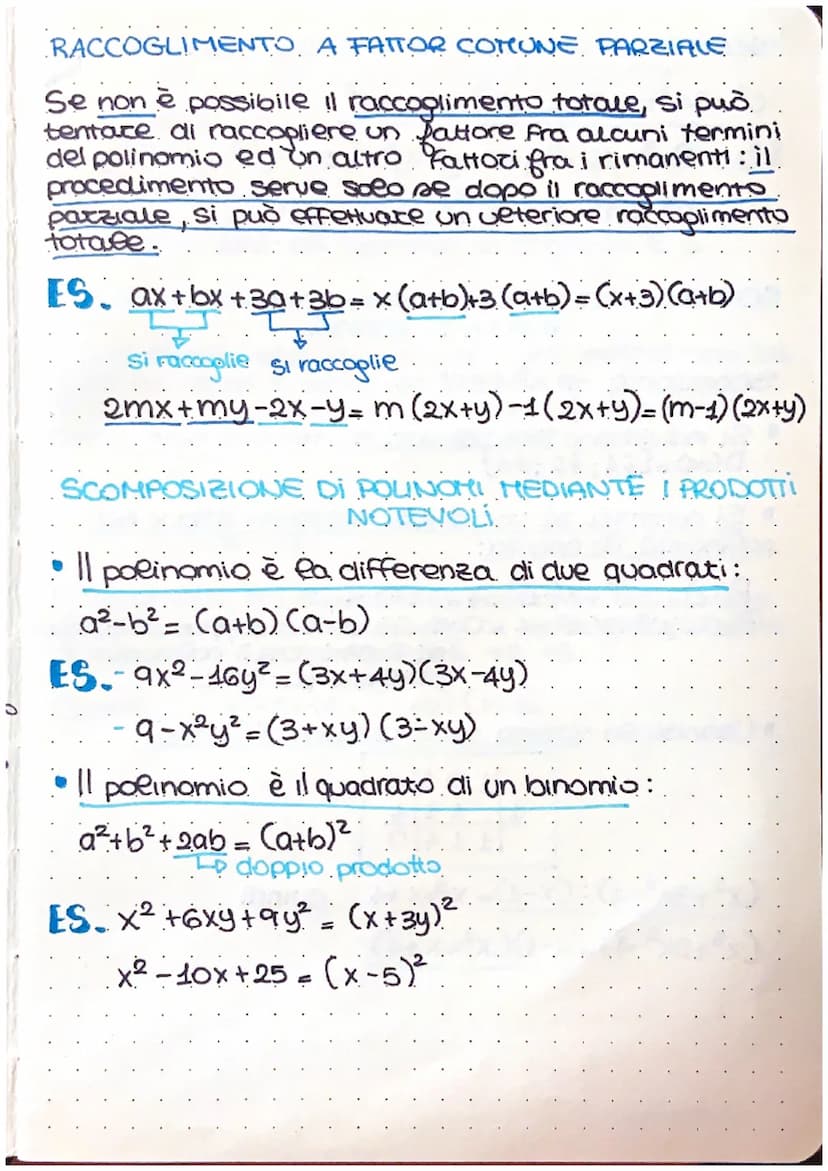 RACCOGLIMENTO A FATTOR COMUNE PARZIALE
Se non è possibile il raccoglimento totale, si può
tentare di raccogliere un fattore fra alcuni termini
del polinomio ed un altro fattori fra i rimanenti: il
procedimento serve solo se dopo il raccoglimento
parziale, si può effettuare un ulteriore raccoglimento
totale.
ES. ax+bx+3a+3b= x(a+b)+3(a+b)=(x+3)(a+b)
si raccoglie si raccoglie
2mx+my-2x-y= m(2x+y)-1(2x+y)=(m-1)(2x+y)
SCOMPOSIZIONE Di POLINOMI MEDIANTE I PRODOTTI
NOTEVOLI
• Il polinomio è la differenza di due quadrati:
a²-b²= (a+b)(a-b)
ES. - 9x²-16y²=(3x+4y)(3x-4y)
- 9-x²y²=(3+xy)(3-xy)
• Il polinomio è il quadrato di un binomio:
a²+b²+2ab = (a+b)²
↳ doppio prodotto
ES. x²+6xy+9y² = (x+3y)²
x²-10x+25 = (x-5)²